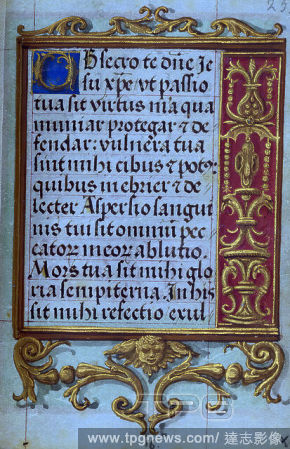 25
Obsecro te dn̄e Je
su xp̄e, vt passio
tua sit virtus m̄a qua
muniar protegar & de
fendar: vulnera tua
sint mihi cibus & pot⁹:
quibus inebrier & de
lecter Aspersio sangui
nis tui sit omniū pec
catorū meorū ablutio.
Mors tua sit mihi glo
ria sempiterna. In his
sit mihi refectio exul
TPG
www.tpgnews.com/ 達志影像